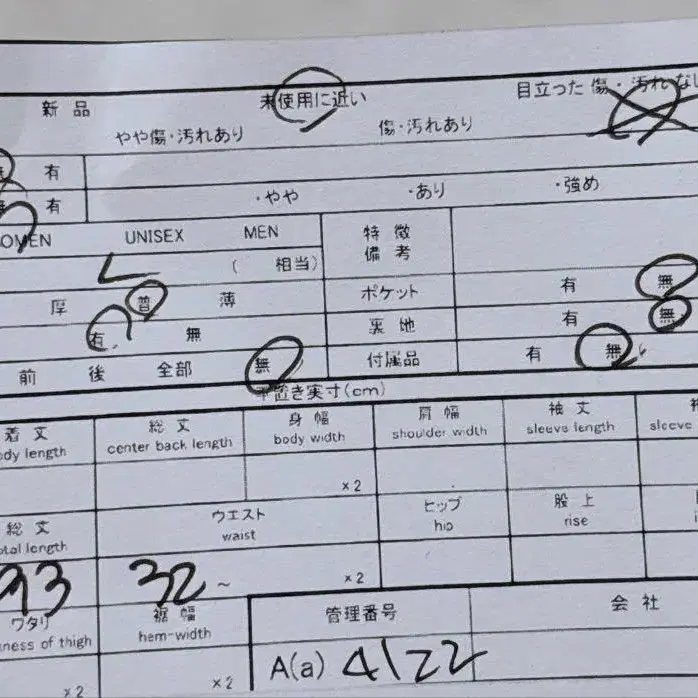 新品 未使用に近い 目立った傷・汚れなし
やや傷・汚れあり 傷・汚れあり
有
有 ・やや ・あり ・強め
WOMEN UNISEX MEN 特徴 備考
L ( 相当)
厚 普 薄 ポケット 有 無
有 無 裏地 有 無
前 後 全部 無 付属品 有 無
平置き実寸(cm)
着丈 総丈 身幅 肩幅 袖丈
body length center back length body width shoulder width sleeve length sleeve
×2
総丈 ウエスト ヒップ 股上
total length waist hip rise
93 32 ~ ×2
ワタリ 裾幅 管理番号 会社
ness of thigh hem-width
×2 ×2 A(a) 4122